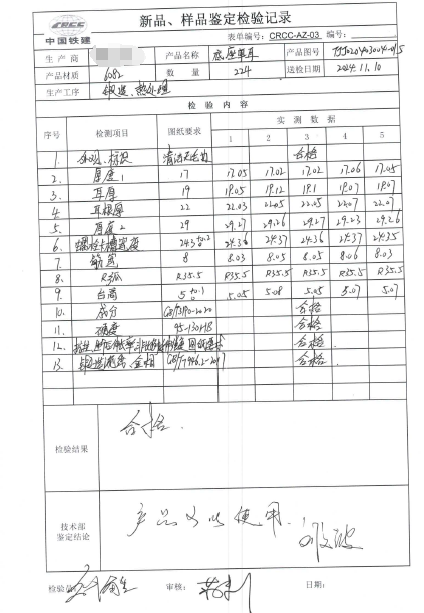 新品、样品鉴定检验记录
CRCC
中国铁建
表单编号：CRCC-AZ-03 编号：
生产商 产品名称 底座单耳 产品图号
产品材质 6082 数量 224 送检日期 2024.11.10
生产工序 锻造、热处理
检验内容
序号 检测项目 图纸要求 实测数据
1 2 3 4 5
1. 外观、标识 清洁无毛边 合格
2. 厚度1 17 17.05 17.02 17.02 17.06 17.05
3. 耳厚 19 19.05 19.12 19.1 19.07 19.07
4 耳根厚 22 22.03 22.05 22.05 22.07 22.07
5 厚度2 29 29.27 29.26 29.27 29.23 29.26
6. 24.3 +0.2 24.36 24.37 24.36 24.37 24.35
7 8 8.03 8.05 8.05 8.05 8.03
8 R弧 R35.5 R35.5 R35.5 R35.5 R35.5 R35.5
9 台高 5 +0.1 5.05 5.08 5.05 5.07 5.07
10. 成分 合格
11. 硬度 95-130HB 合格
12. 合格
13. 金相 合格
检验结果
合格.
技术部
鉴定结论
产品可以使用.
检验员: 审核: 日期: